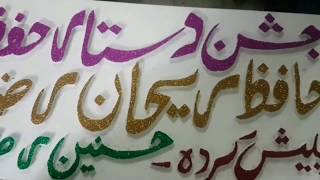 جشن دستار حفظ
حافظ ریحان رض
پیش کردہ۔ حسنین رض